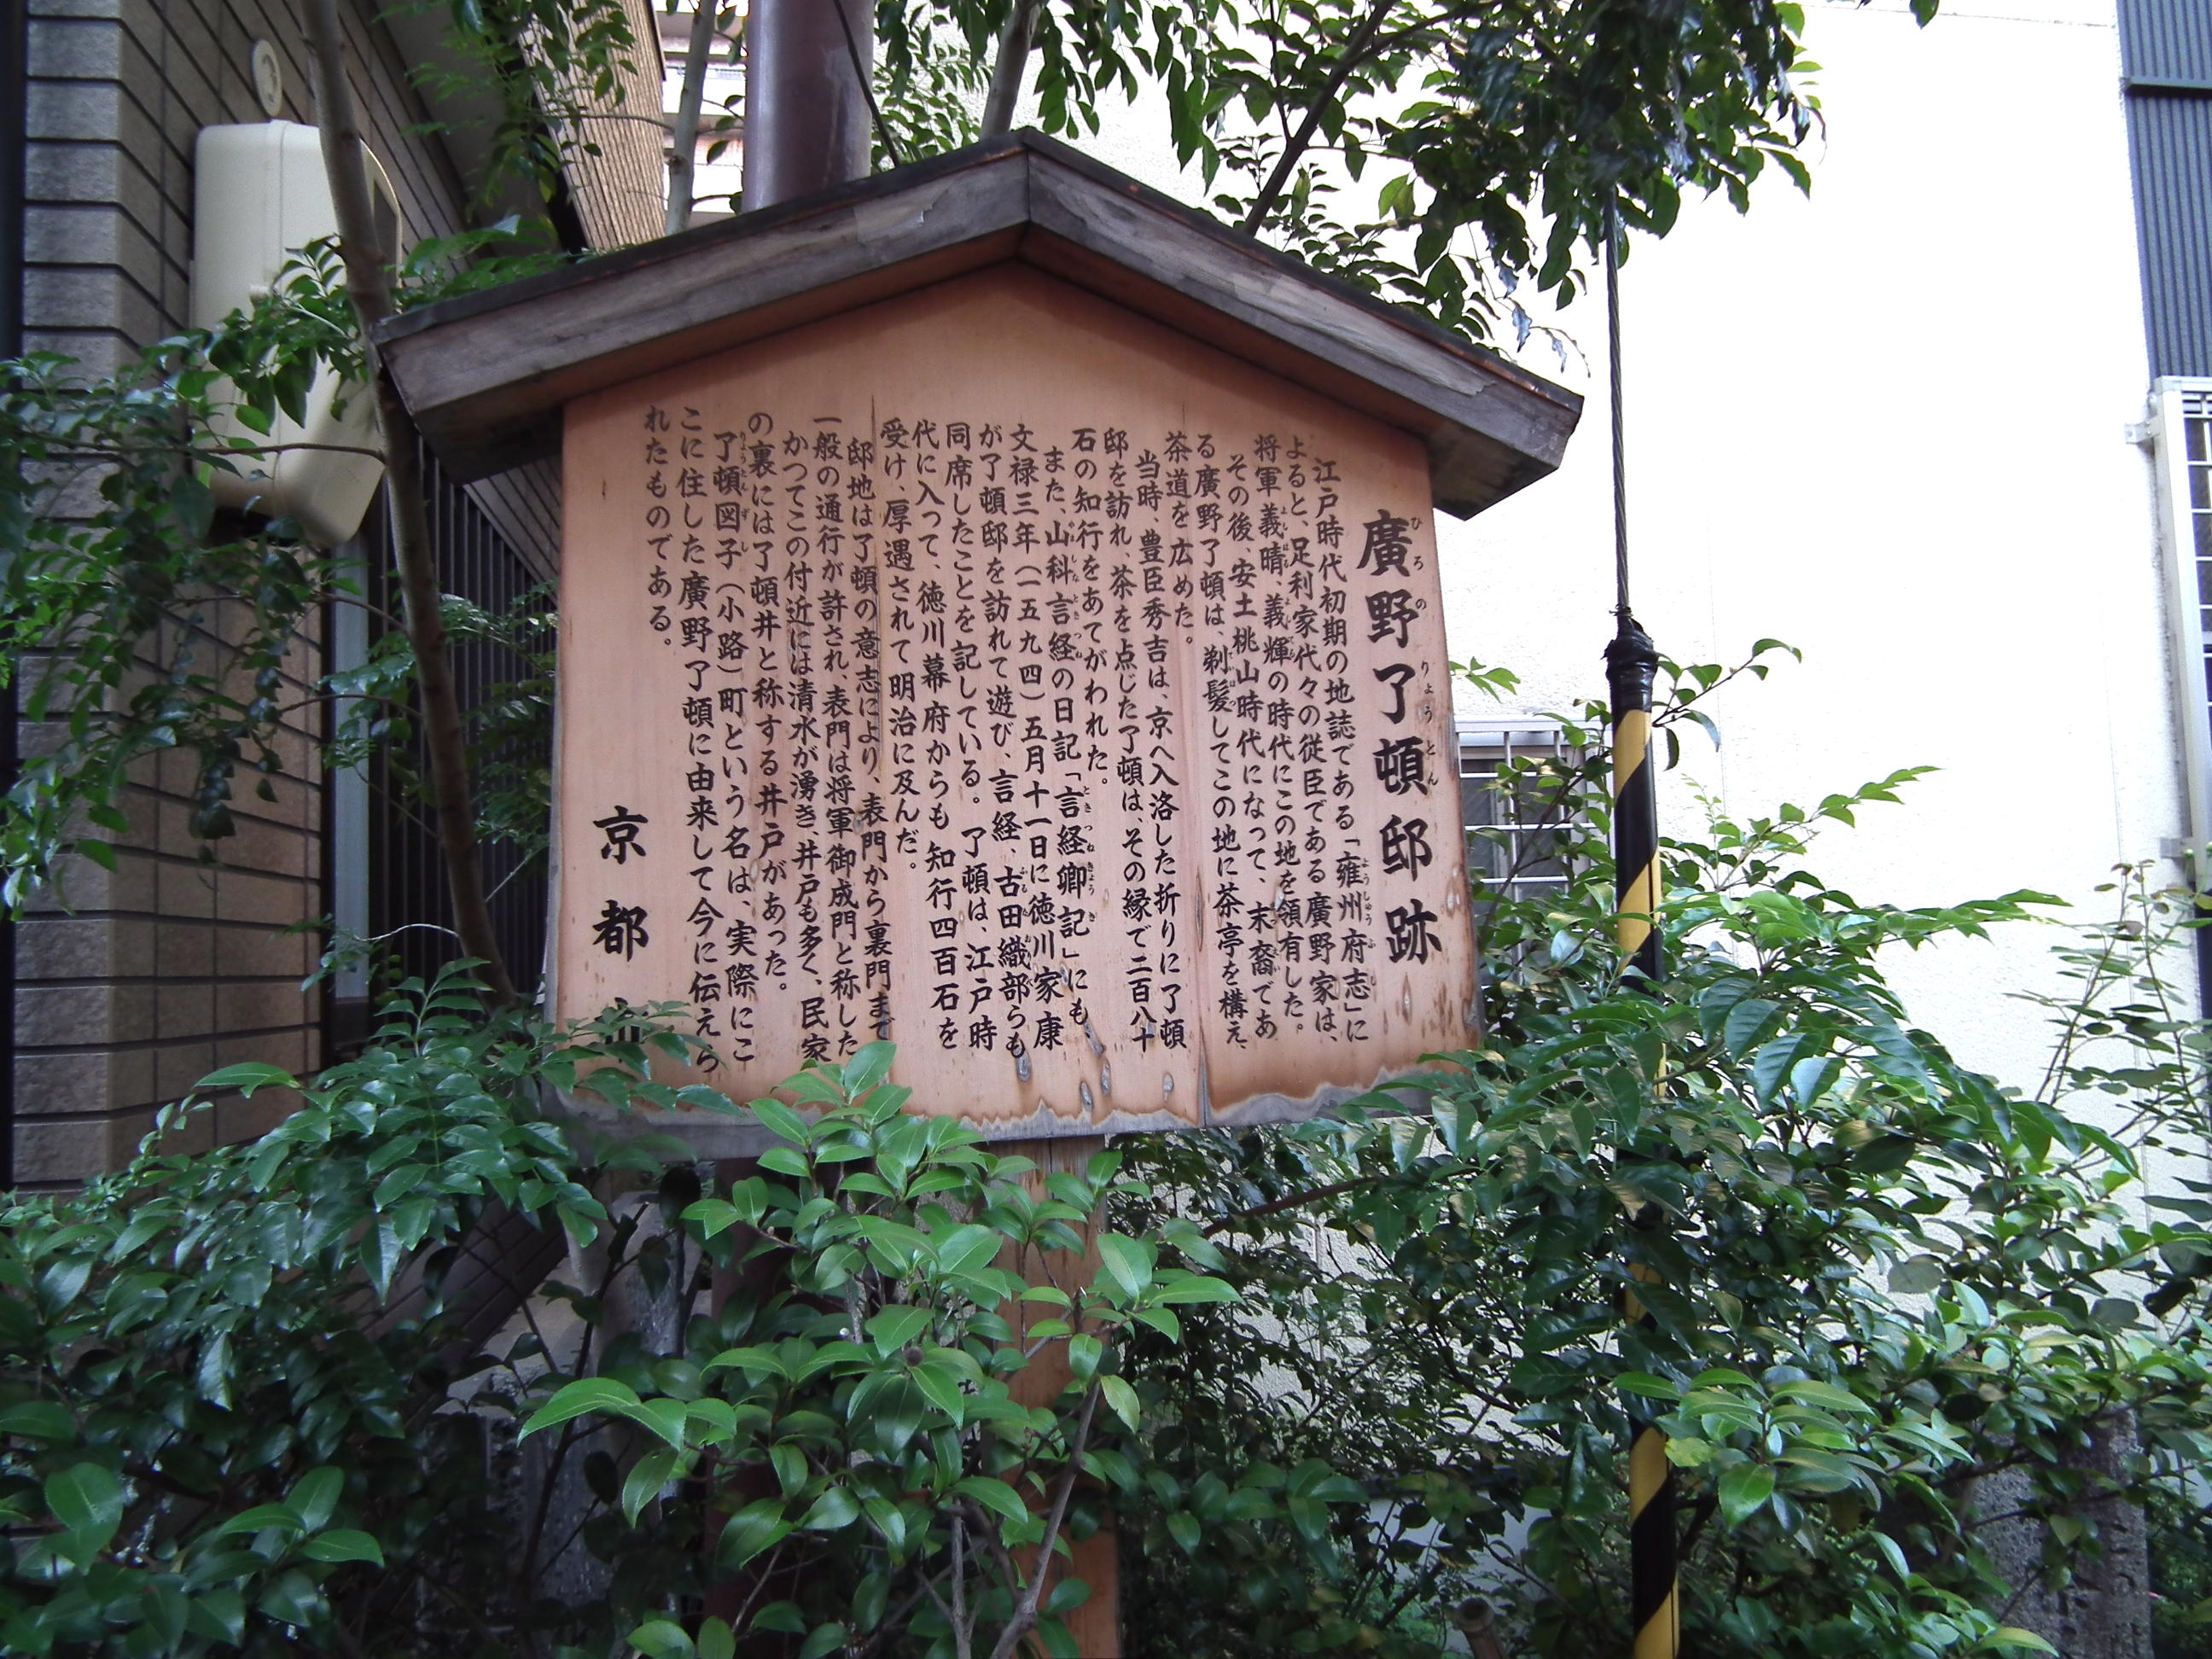 廣野了頓邸跡
江戸時代初期の地誌である「雍州府志」に
よると、足利家代々の従臣である廣野家は、
将軍義晴、義輝の時代にこの地を領有した。
その後、安土桃山時代になって、末裔であ
る廣野了頓は、剃髪してこの地に茶亭を構え、
茶道を広めた。
当時、豊臣秀吉は、京へ入洛した折りに了頓
邸を訪れ、茶を点じた了頓は、その縁で二百八十
石の知行をあてがわれた。
また、山科言経の日記「言経卿記」にも、
文禄三年（一五九四）五月十一日に徳川家康
が了頓邸を訪れて遊び、言経、古田織部らも
同席したことを記している。了頓は、江戸時
代に入って、徳川幕府からも知行四百石を
受け、厚遇されて明治に及んだ。
邸地は了頓の意志により、表門から裏門まで
一般の通行が許され、表門は将軍御成門と称した
かつてこの付近には清水が湧き、井戸も多く、民家
の裏には了頓井と称する井戸があった。
了頓図子（小路）町という名は、実際にこ
こに住した廣野了頓に由来して今に伝えら
れたものである。
京都